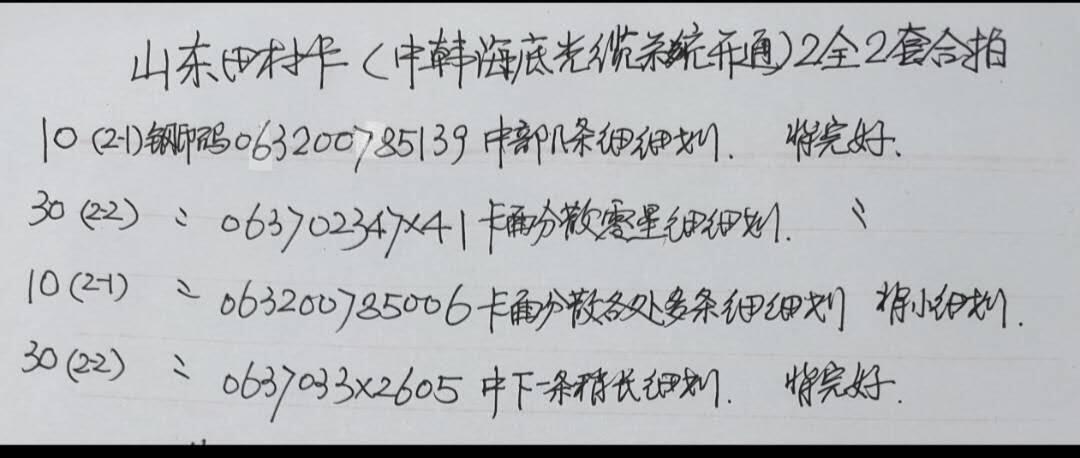 山东田村卡（中韩海底光缆系统开通）2全2套合拍
10（2-1）钢印码063200785139 中部几条细细划. 背完好.
30（2-2） 〃 063702347×41 卡面分散零星细细划. 〃
10（2-1） 〃 063200785006 卡面分散各处多条细细划 背小细划.
30（2-2） 〃 0637033×2605 中下一条稍长细划. 背完好.